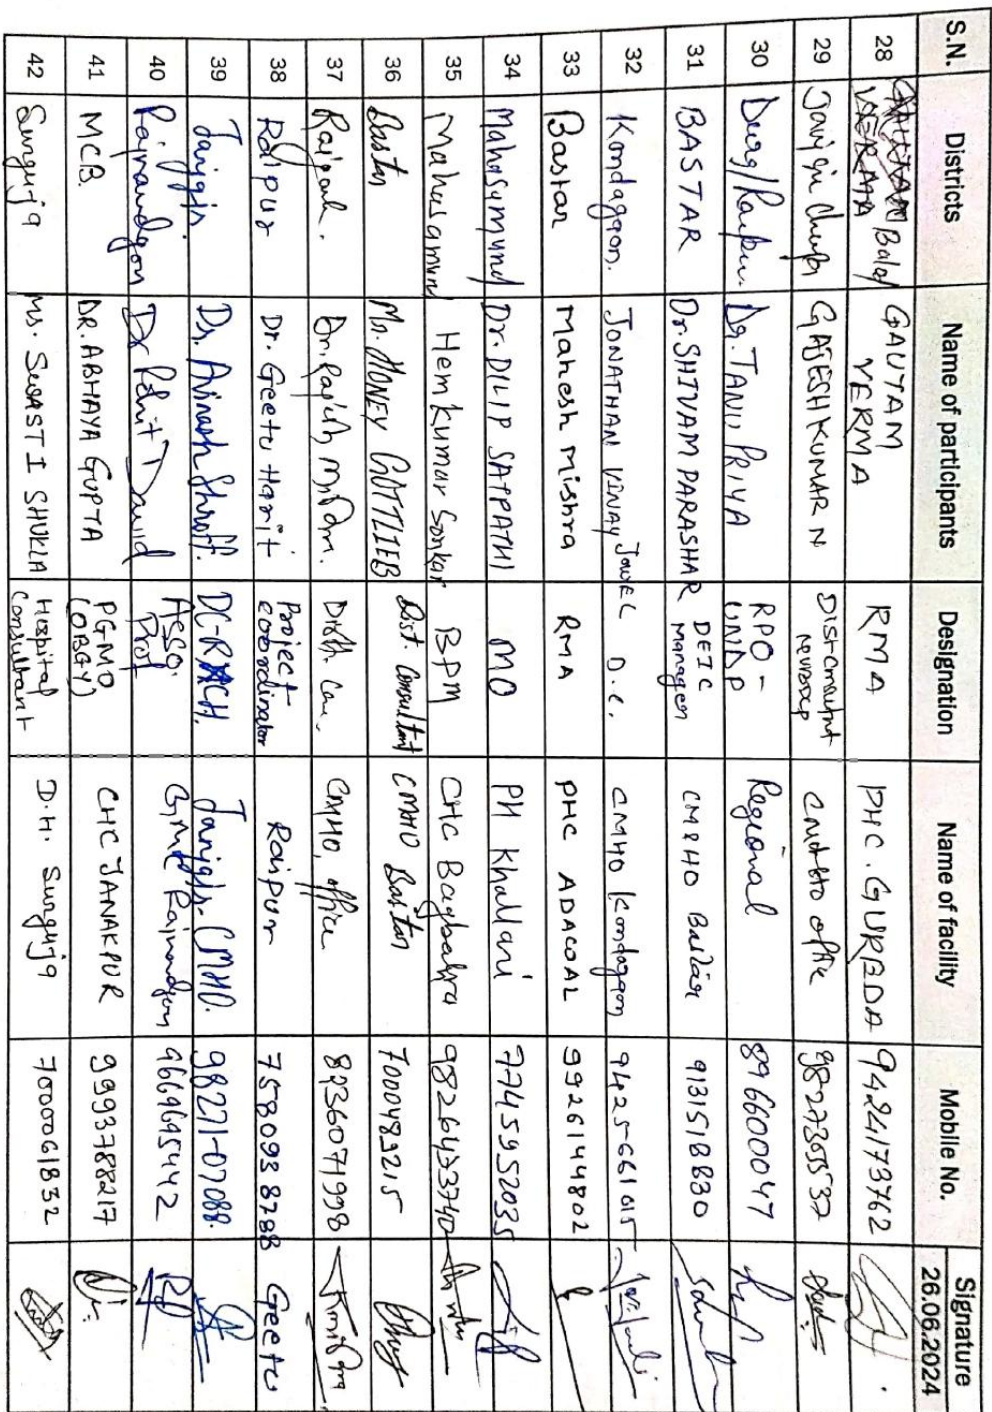 S.N. Districts Name of participants Designation Name of facility Mobile No. Signature 26.06.2024
28 Balod GAUTAM VERMA RMA PHC. GUREDA 9424173762
29 Janjgir Champa GAJESH KUMAR N office
30 Durg/Raipur. Dr. TANU PRIYA RPO - Regional 8966000047
31 BASTAR Dr. SHIVAM PARASHAR DEIC Manager CMHO Bastar 9131518830
32 Kondagaon. JONATHAN VINAY D.C. CMHO Kondagaon 94255-661015
33 Bastar Mahesh Mishra RMA PHC ADACOAL 9926144802
34 Mahasamund Dr. DILIP SATPATHI MO PH Khallari 7745952035
35 Mahasamund Hem Kumar Sonkar BPM CHC Bagbahra 9826433740
36 Bastar Mr. MONEY GOTTLIEB Dist. Consultant CMHO Bastar 7000489215
37 Raigarh. CMHO, office
38 Raipur Dr. Geetu Harit Project coordinator Raipur 7580938788 Geetu
39 Janjgir Dr. Avinash Shroff. DC-RCH. Janjgir. CMHO. 98271-07088.
40 Rajnandgaon Dr Rohit David Asso. Prof GMC Rajnandgaon 9669645442
41 MCB DR. ABHAYA GUPTA PGMO (OBGY) CHC JANAKPUR 9993788217
42 Surguja Ms. SWASTI SHUKLA Hospital Consultant D.H. Surguja 7000061832